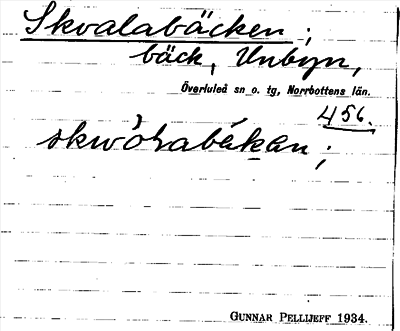 Skvalabäcken;
bäck, Unbyn,
Överluleå sn o. tg, Norrbottens län.
456.
skwòhabäkan;
GUNNAR PELLIJEFF 1934.